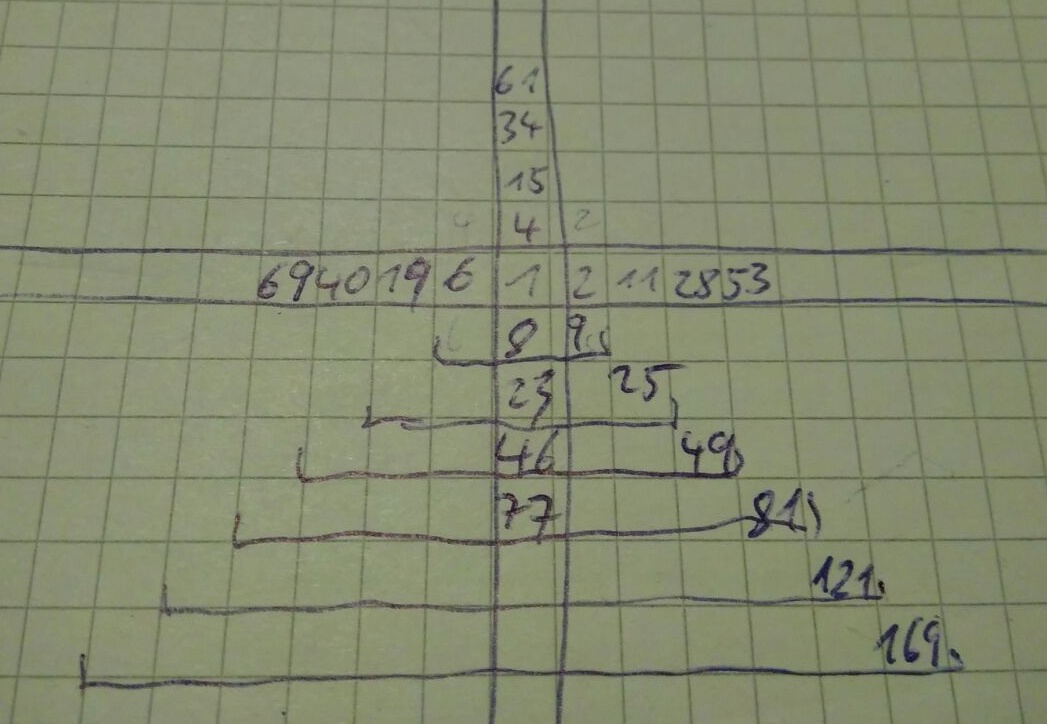 61
34
15
4 2
69 40 19 6 1 2 11 28 53
8 9
23 25
46 49
77 81
121
169